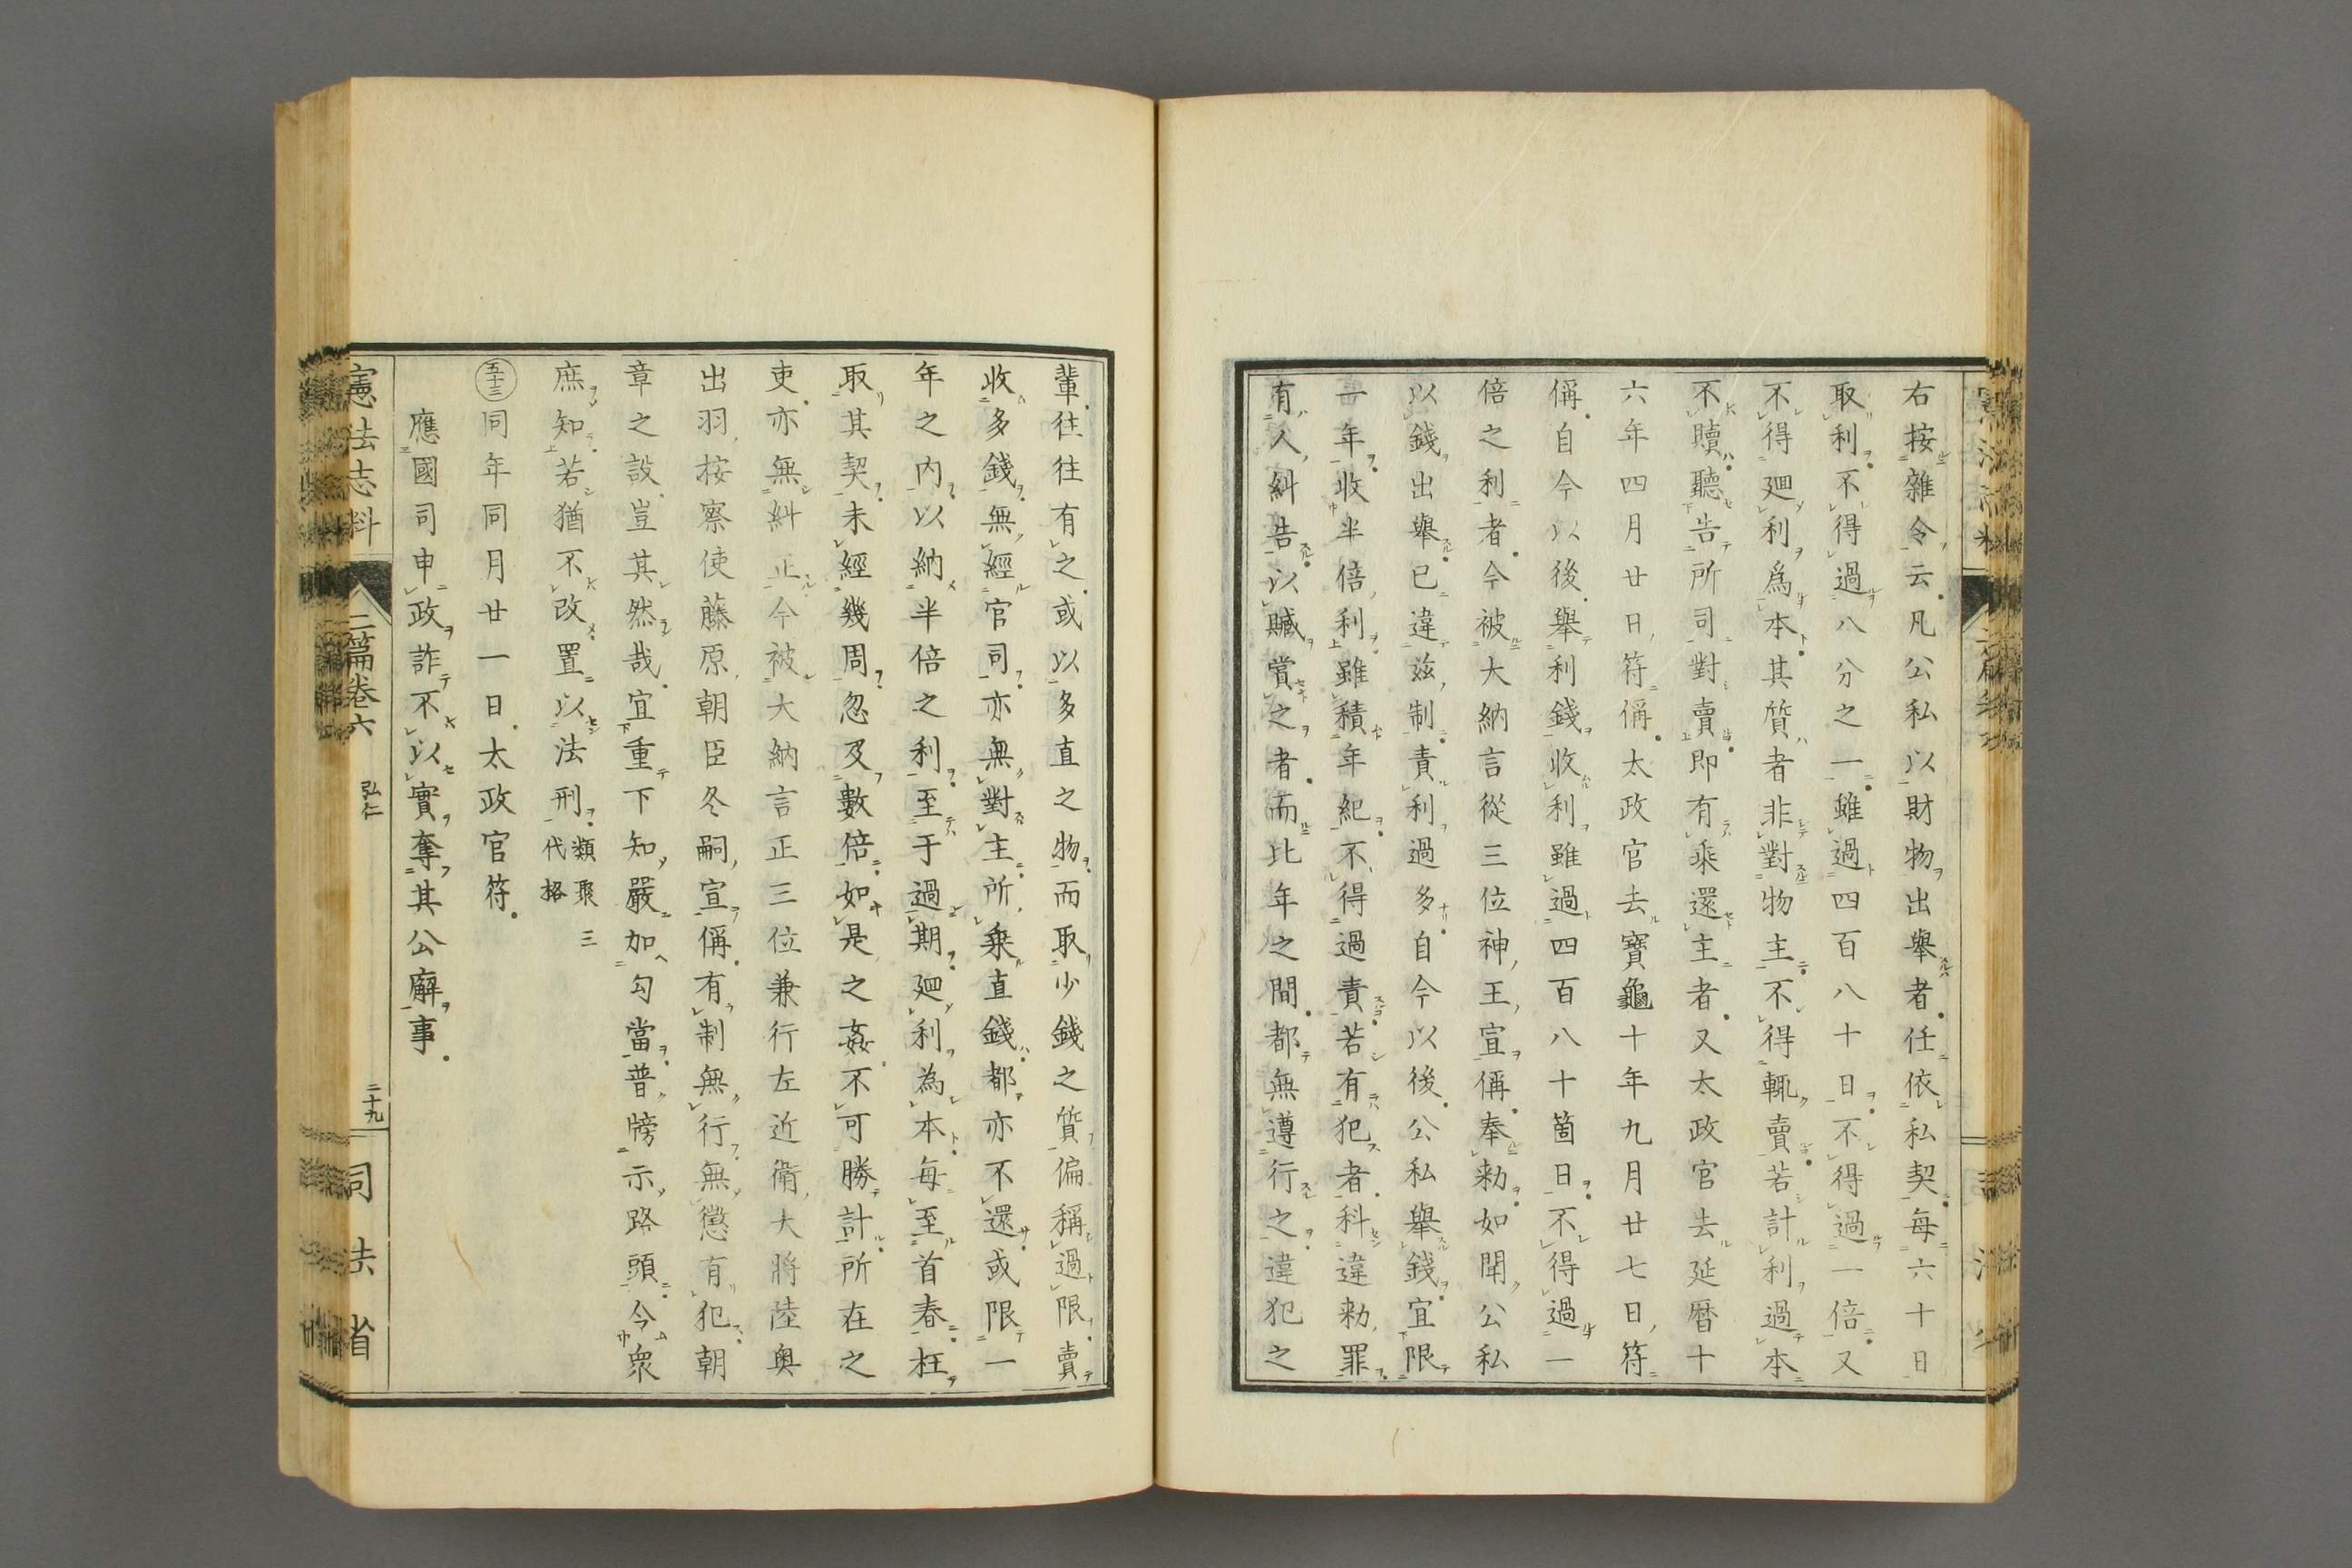 右按雜令云凡公私以財物出舉者任依私契每六十日
取利不得過八分之一雖過四百八十日不得過一倍又
不得廻利爲本其質者非對物主不得輙賣若計利過本
不贖聽告所司對賣即有乘還主者又太政官去延暦十
六年四月廿日符偁太政官去寳龜十年九月廿七日符
偁自今以後舉利錢收利雖過四百八十箇日不得過一
倍之利者今被大納言從三位神王宣偁奉勅如聞公私
以錢出舉已違茲制責利過多自今以後公私舉錢宜限
一年收半倍利雖積年紀不得過責若有犯者科違勅罪
有人糾告以贓賞之者而比年之間都無遵行之違犯之
輩往往有之或以多直之物而取少錢之質偏稱過限賣
收多錢無經官司亦無對主所乘直錢都亦不還或限一
年之内以納半倍之利至于過期廻利為本每至首春枉
取其契未經幾周忽及數倍如是之姦不可勝計所在之
吏亦無糾正今被大納言正三位兼行左近衛大將陸奥
出羽按察使藤原朝臣冬嗣宣偁有制無行無懲有犯朝
章之設豈其然哉宜重下知嚴加勾當普牓示路頭令衆
庶知若猶不改置以法刑類聚三代格
五十三同年同月廿一日太政官符
應國司申政詐不以實奪其公廨事
憲法志料 二篇卷六 弘仁 二十九 司法省